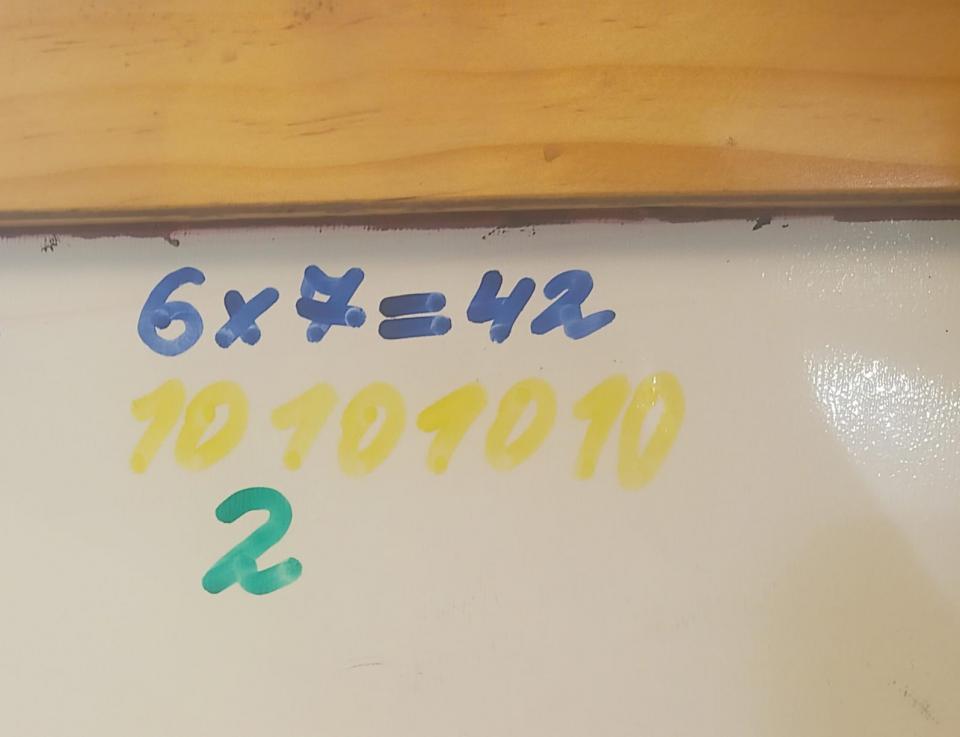 6x7=42
10 10 10 10
2